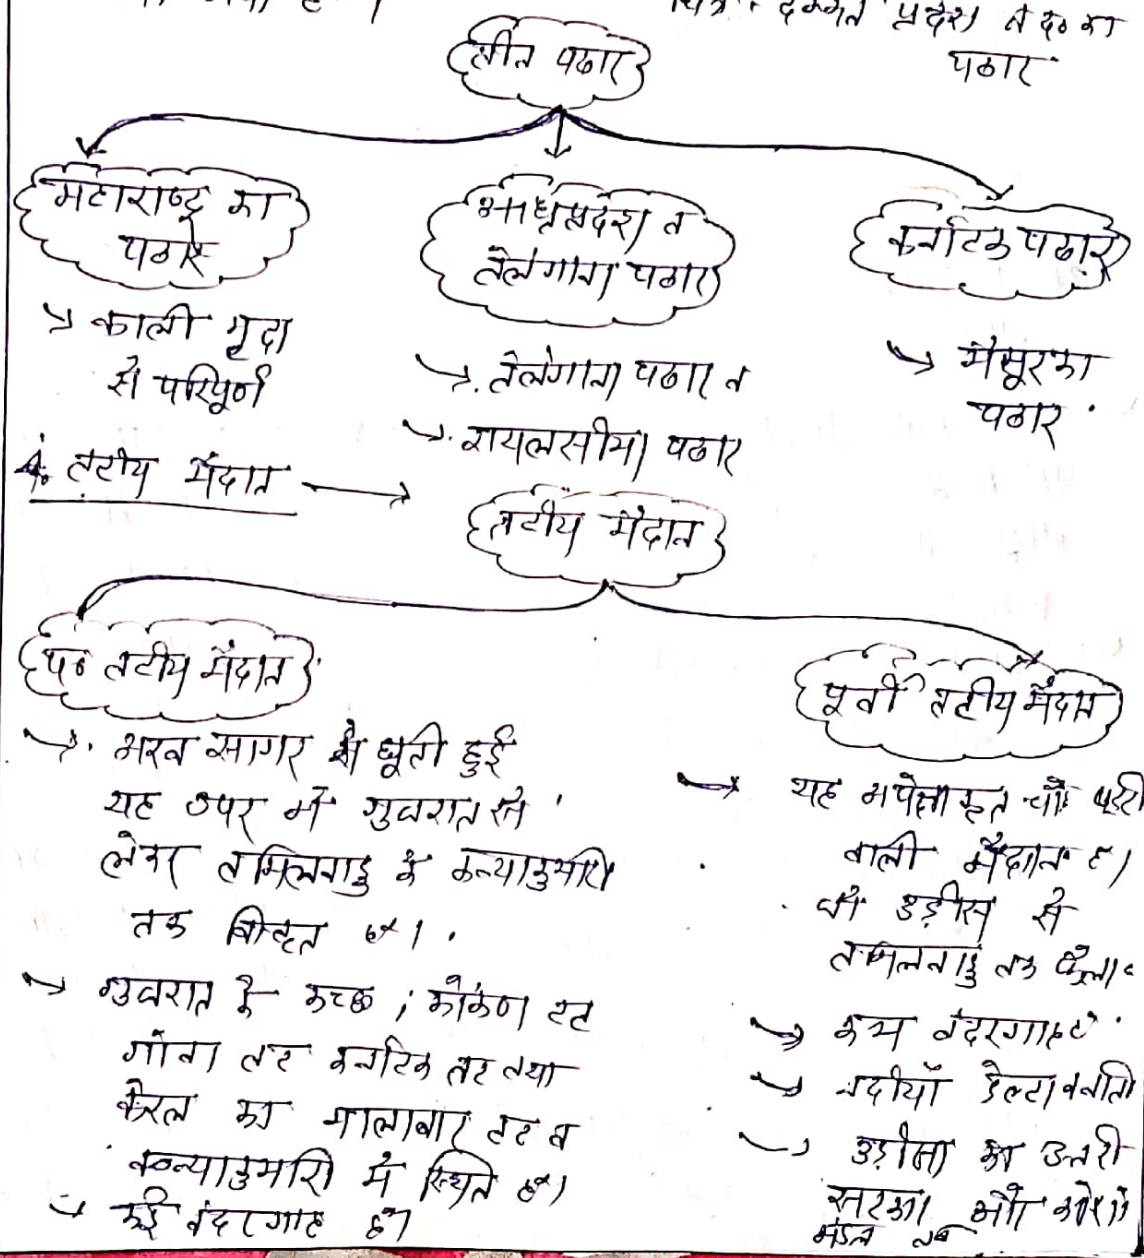 चित्र : दक्कन प्रदेश व द० का
पठार
तीन पठार
महाराष्ट्र का
पठार
→ काली मृदा
से परिपूर्ण
आंध्रप्रदेश व
तेलंगाना पठार
→ तेलंगाना पठार व
→ रायलसीमा पठार
कर्नाटक पठार
→ मैसूर का
पठार
4. तटीय मैदान →
तटीय मैदान
प० तटीय मैदान
→ अरब सागर से छूती हुई
यह उपर में गुजरात से
लेकर तमिलनाडु के कन्याकुमारी
तक है।
→ गुजरात के कच्छ, कोंकण तट
गोवा तट कर्नाटक तट तथा
केरल का मालाबार तट व
कन्याकुमारी में स्थित है।
→ कई बंदरगाह है।
पूर्वी तटीय मैदान
→ यह अपेक्षाकृत चौ० पट्टी
वाली मैदान है।
जो उड़ीसा से
तमिलनाडु तक फैला
→ कम बंदरगाह है
→ नदीयाँ डेल्टा बनाती
→ उड़ीसा का उत्तरी
सरकार और कोरो
मंडल तक